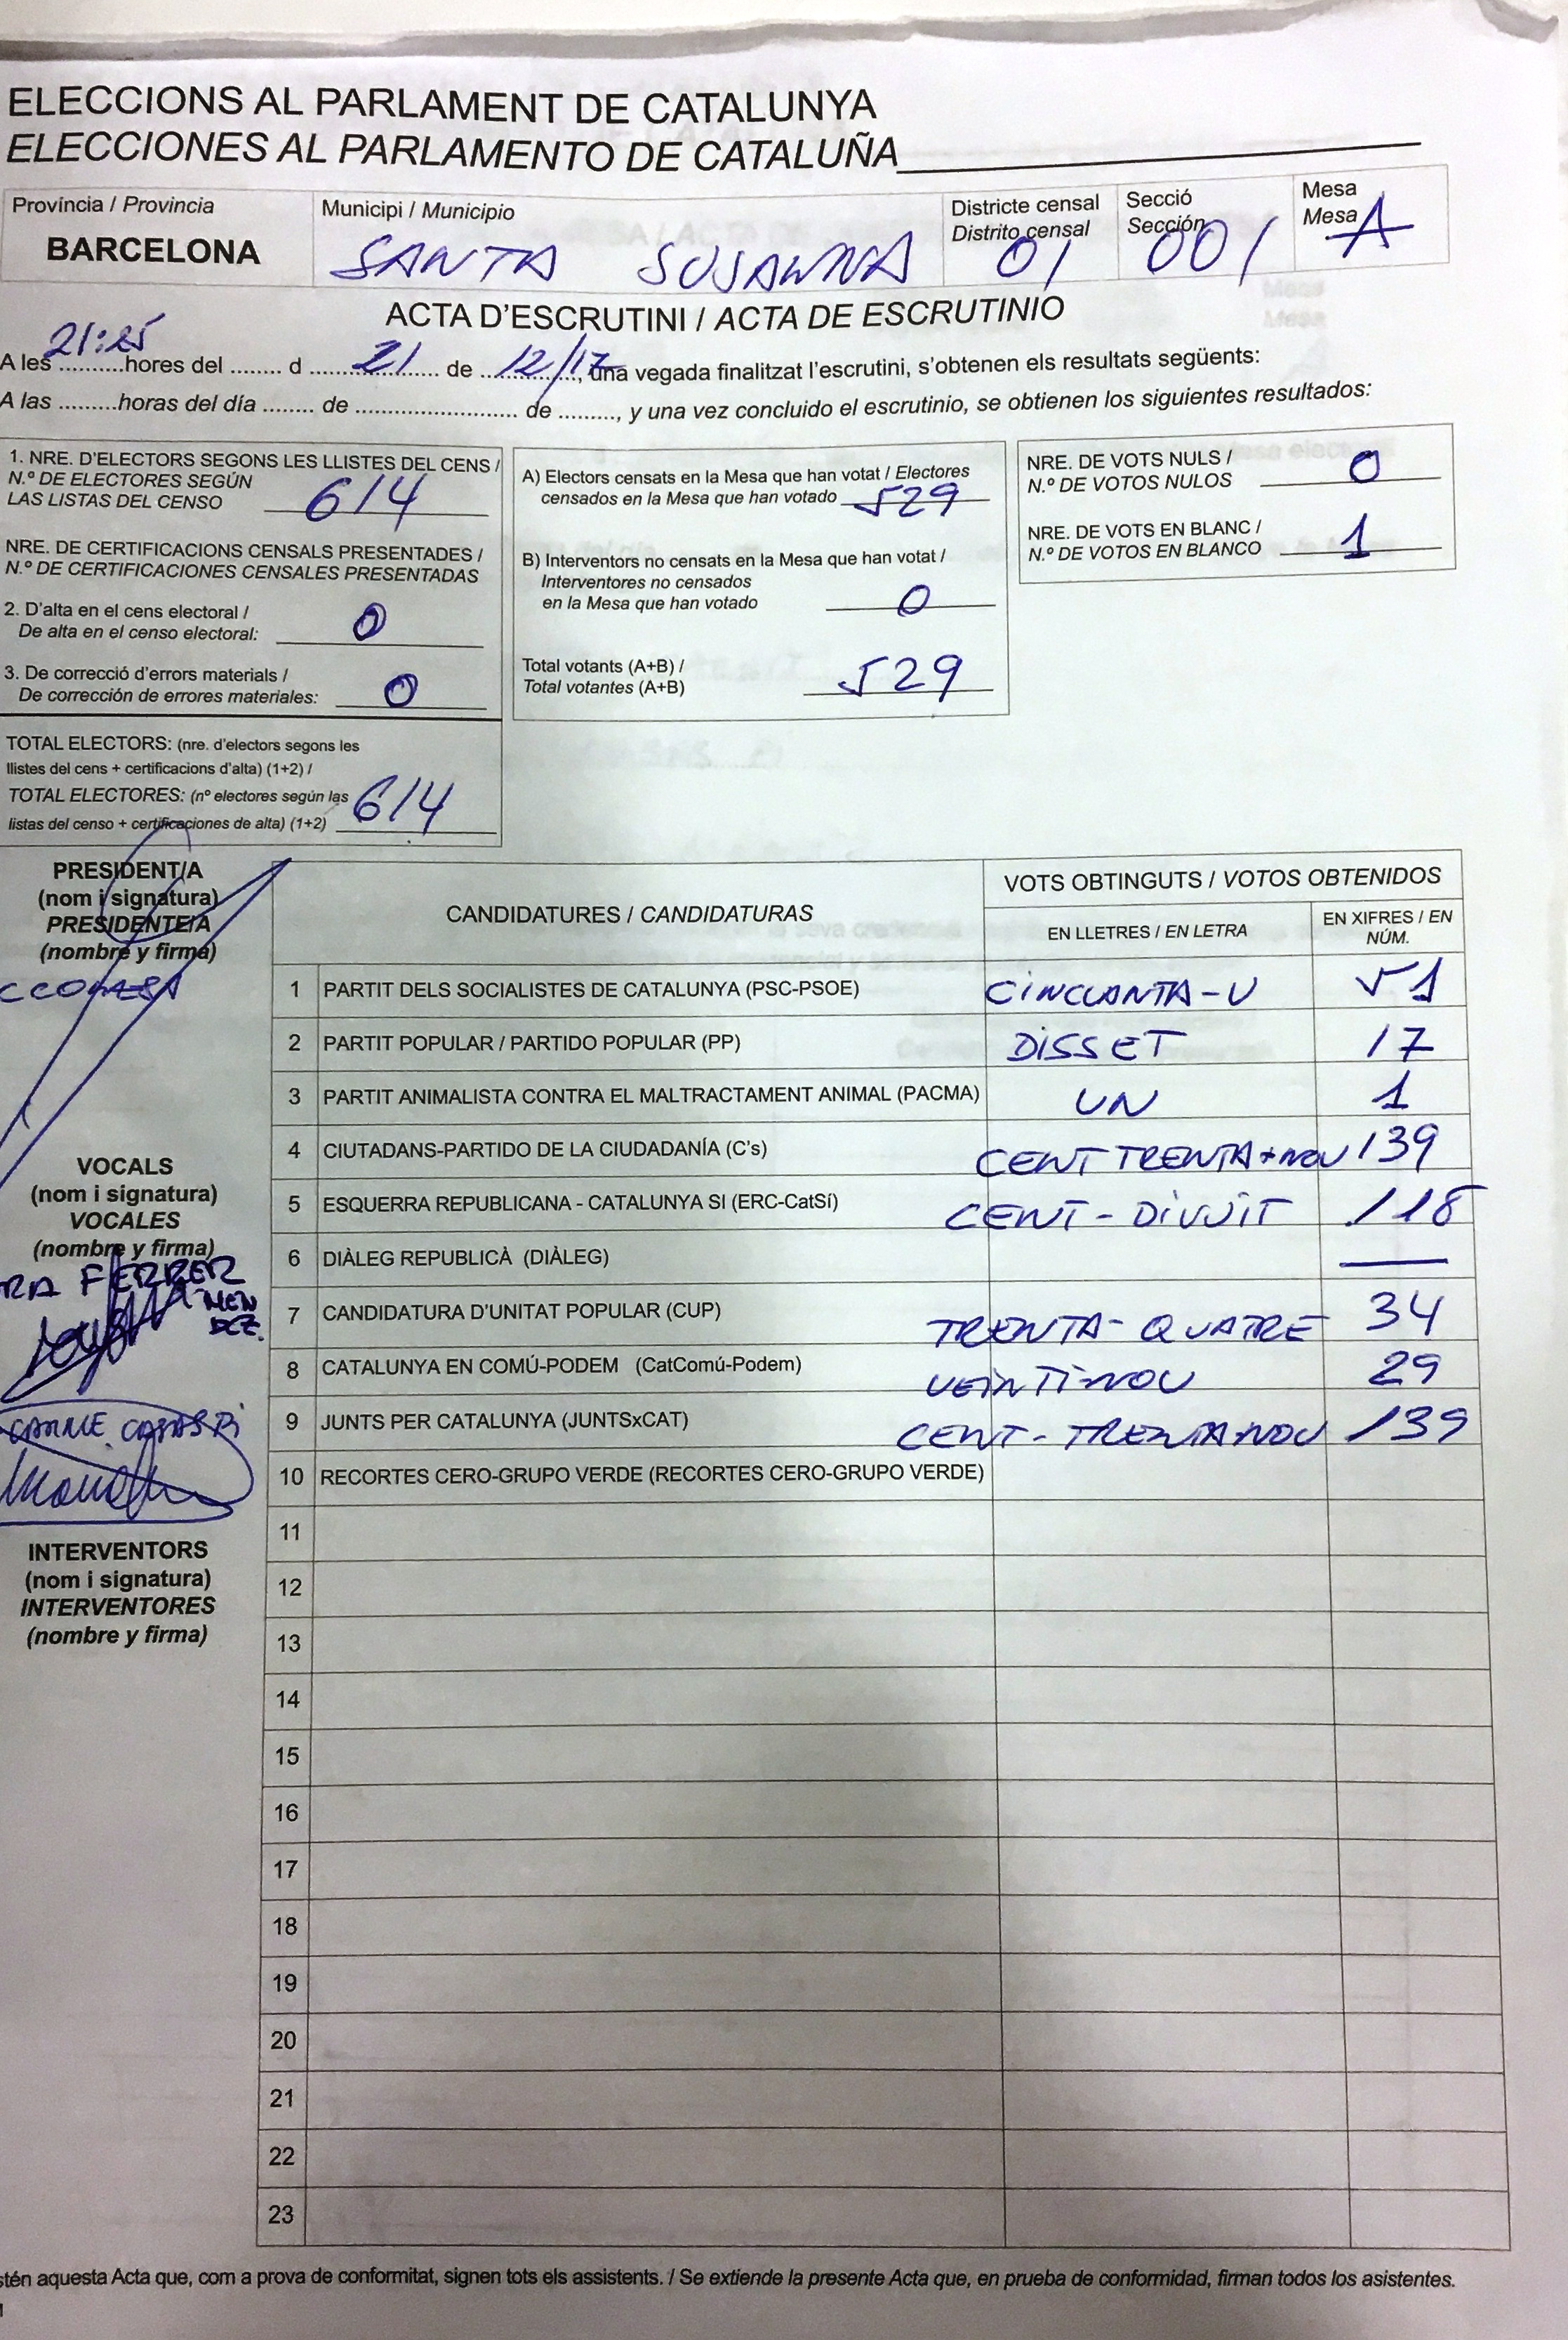 ELECCIONS AL PARLAMENT DE CATALUNYA
ELECCIONES AL PARLAMENTO DE CATALUÑA
Província / Provincia
BARCELONA
Municipi / Municipio
SANTA SUSANNA
Districte censal
Distrito censal
01
Secció
Sección
001
Mesa
Mesa
A
ACTA D'ESCRUTINI / ACTA DE ESCRUTINIO
A les 21:25 hores del ........ d 21 de 12/17, una vegada finalitzat l'escrutini, s'obtenen els resultats següents:
A las .........horas del día ........ de ........................ de ........., y una vez concluido el escrutinio, se obtienen los siguientes resultados:
1. NRE. D'ELECTORS SEGONS LES LLISTES DEL CENS /
N.º DE ELECTORES SEGÚN
LAS LISTAS DEL CENSO 614
NRE. DE CERTIFICACIONS CENSALS PRESENTADES /
N.º DE CERTIFICACIONES CENSALES PRESENTADAS
2. D'alta en el cens electoral /
De alta en el censo electoral: 0
3. De correcció d'errors materials /
De corrección de errores materiales: 0
TOTAL ELECTORS: (nre. d'electors segons les
llistes del cens + certificacions d'alta) (1+2) /
TOTAL ELECTORES: (nº electores según las
listas del censo + certificaciones de alta) (1+2) 614
A) Electors censats en la Mesa que han votat / Electores
censados en la Mesa que han votado 529
B) Interventors no censats en la Mesa que han votat /
Interventores no censados
en la Mesa que han votado 0
Total votants (A+B) /
Total votantes (A+B) 529
NRE. DE VOTS NULS /
N.º DE VOTOS NULOS 0
NRE. DE VOTS EN BLANC /
N.º DE VOTOS EN BLANCO 1
PRESIDENT/A
(nom i signatura)
PRESIDENTE/A
(nombre y firma)
VOCALS
(nom i signatura)
VOCALES
(nombre y firma)
RA FERRER
MEN
DEZ.
INTERVENTORS
(nom i signatura)
INTERVENTORES
(nombre y firma)
CANDIDATURES / CANDIDATURAS
VOTS OBTINGUTS / VOTOS OBTENIDOS
EN LLETRES / EN LETRA
EN XIFRES / EN
NÚM.
1 PARTIT DELS SOCIALISTES DE CATALUNYA (PSC-PSOE) CINCUANTA-U 51
2 PARTIT POPULAR / PARTIDO POPULAR (PP) DISSET 17
3 PARTIT ANIMALISTA CONTRA EL MALTRACTAMENT ANIMAL (PACMA) UN 1
4 CIUTADANS-PARTIDO DE LA CIUDADANÍA (C's) CENT TRENTA-NOU 139
5 ESQUERRA REPUBLICANA - CATALUNYA SI (ERC-CatSí) CENT - DIVUIT 118
6 DIÀLEG REPUBLICÀ (DIÀLEG) —
7 CANDIDATURA D'UNITAT POPULAR (CUP) TRENTA-QUATRE 34
8 CATALUNYA EN COMÚ-PODEM (CatComú-Podem) VEINTI-NOU 29
9 JUNTS PER CATALUNYA (JUNTSxCAT) CENT-TRENTA-NOU 139
10 RECORTES CERO-GRUPO VERDE (RECORTES CERO-GRUPO VERDE)
11
12
13
14
15
16
17
18
19
20
21
22
23
stén aquesta Acta que, com a prova de conformitat, signen tots els assistents. / Se extiende la presente Acta que, en prueba de conformidad, firman todos los asistentes.